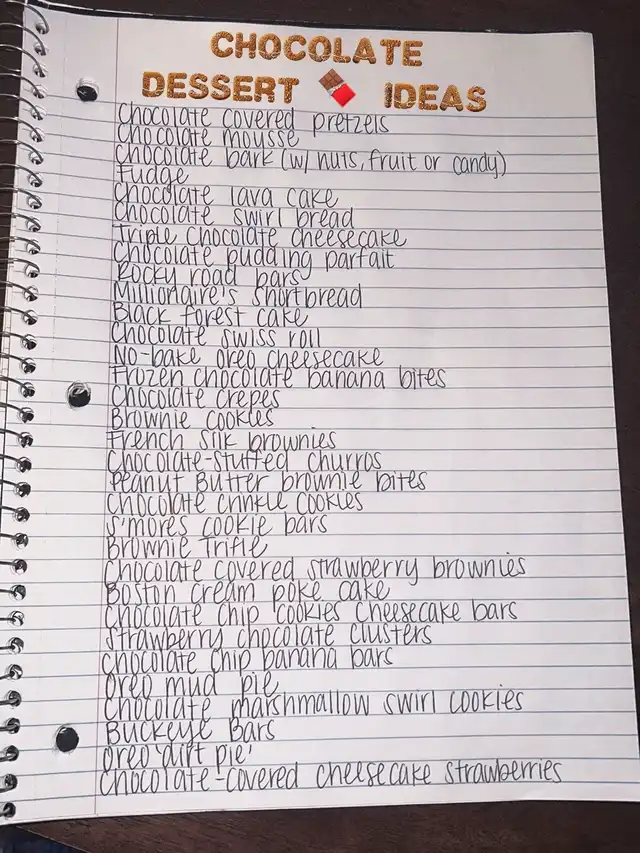 CHOCOLATE
DESSERT IDEAS
Chocolate covered pretzels
Chocolate mousse
Chocolate bark (w/ nuts, fruit or candy)
Fudge
Chocolate lava cake
Chocolate swirl bread
Triple chocolate cheesecake
Chocolate pudding parfait
Rocky road bars
Millionaire's shortbread
Black forest cake
Chocolate swiss roll
No-bake oreo cheesecake
Frozen chocolate banana bites
Chocolate crepes
Brownie cookies
French silk brownies
Chocolate-stuffed churros
Peanut Butter brownie bites
Chocolate crinkle cookies
S'mores cookie bars
Brownie Trifle
Chocolate covered strawberry brownies
Boston cream poke cake
Chocolate chip cookies cheesecake bars
Strawberry chocolate clusters
Chocolate chip banana bars
Oreo mud pie
Chocolate marshmallow swirl cookies
Buckeye Bars
Oreo 'dirt pie'
Chocolate-covered cheesecake strawberries